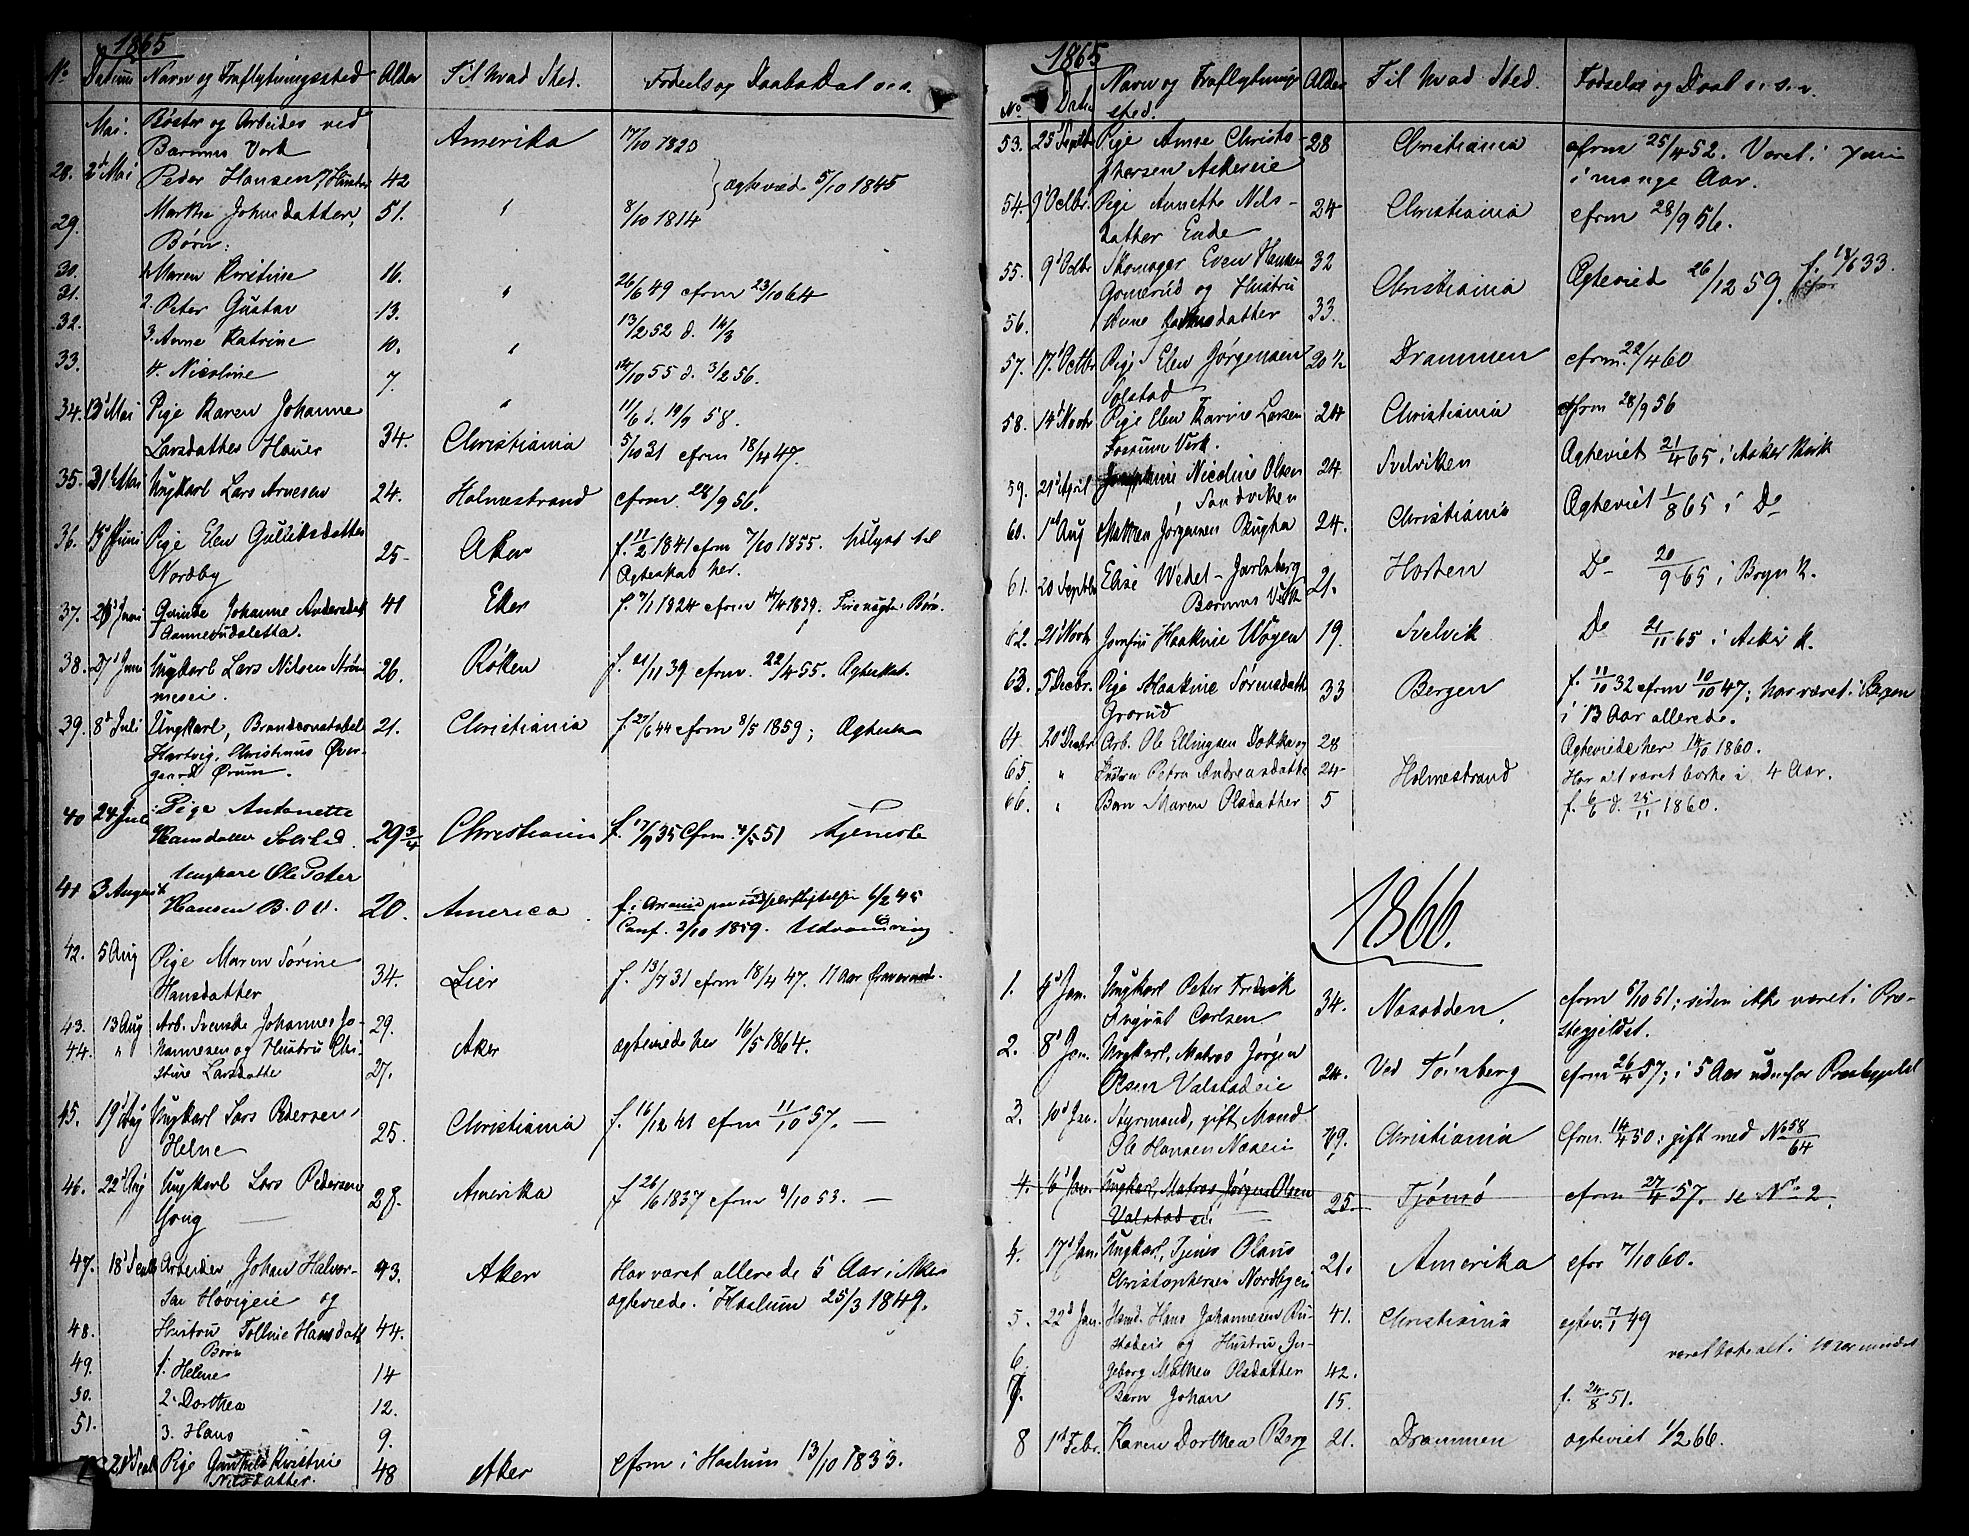 1865
No Datum Navn og Fraflytningssted Alder Til hvad Sted. Fødsels og Daabs Dat o.s.v.
Mai. Bøster og Arbeider ved Amerika 17/10 1820
Bærums Verk
28. 2d Mai Peder Hansen, Hustru 42 Ægteviede 5/10 1845
29. Marthe Johnsdatter, 51. " 8/10 1814
Børn:
30. 1. Maren Kirstine 16. " 26/6 49 cfrm 23/10 64
31. 2. Peter Gustav 13. 13/2 52 d. 14/3
32. 3. Anne Katrine 10. " 14/10 55 d. 3/2 56.
33. 4. Nicoline 7. " 11/6 d. 19/9 58.
34. 13d Mai Pige Karen Johanne
Larsdatter Hauer 34. Christiania 5/10 31 cfrm 18/4 47.
35. 31t Mai Ungkarl Lars Arnesen 24. Holmestrand cfrm. 28/9 56.
36. 15d Juni Pige Elen Guliksdatter 25- Aker f. 11/2 1841 cfrm 7/10 1855. Udlyst til
Nordby Ægteskab her.
37. 26d Juni Qvinde Johanne Andersdatt 41 Eker f. 7/1 1824 cfrm 14/4 1839.
38. 27d Juni Ungkarl Lars Nilsen 26. Røken f. 21/11 39 cfrm. 22/4 55. Ægteskab.
39. 8d Juli Ungkarl, 21. Christiania f. 27/6 44 cfrm 8/5 1859; Ægtesk
Hartvig Christinus Øver-
gaard Ørum.
40 24 Juli Pige Antonette
Hansdatter 29 3/4 Christiania f. 17/9 35 Cfrm. 4/5 51 tjeneste
41 3 August Ungkarl Ole Peter
Hansen B.V. 20. America f. 6/2 45
Conf. 2/10 1859. Udvandring
42. 5 Aug Pige Maren Sørine 34. Lier f. 13/7 31 cfrm 18/4 47. 11 Aar
Hansdatter
43. 13 Aug Arb. Svenske Johannes Jo- 29.
44. " hannesen og Hustru Chri- Aker ægteviede her 16/5 1864.
stine Larsdatter 27.
45. 19d Aug Ungkarl Lars Pedersen, 25. Christiania f. 16/12 41 cfrm 11/10 57. —
Helne
46. 22d Aug Ungkarl Lars Pedersen 28. Amerika f 26/6 1837 cfrm 9/10 53. —
Gong
47. 18d Septb Arbeider Johan Halvor- 43. Aker Har været allerede 5 Aar i Aker
sen Høvigeie og ægteviede i Haslum 25/3 1849.
48. Hustru Tolline Hansdatt 44.
Børn
49. 1. Helene 14
50. 2. Dorthea 12.
51. 3. Hans 9.
52 21d Septb Pige Gunhild Kirstine 48 Aker cfrm i Haslum 13/10 1833.
Nilsdatter.
1865
No Datum Navn og Fraflytnings Alder Til hvad Sted. Fødsels og Daab o.s.v.
sted.
53. 25d Septb Pige Anne Christo- 28 Christiania cfrm 25/4 52. Været i
phersen Askereie i mange Aar.
54. 9d Octbr. Pige Annette Nils- 24 Christiania cfrm 28/9 56.
datter Ende
55. 9d Octbr Skomager Even Hansen 32 Christiania Ægteviede 26/12 59. f. 18/6 33.
Gomerud og Hustru
56. Anne datter 33.
57. 17d Octbr Pige Elen Jørgensen 20 1/2 Drammen cfrm. 22/4 60
Solstad
58. 14d Novbr Pige Elen Karine Larsen 24 Christiania cfrm 28/9 56
Fossum Verk.
59. 21d April Josephine Nicoline Olsen 24. Svelviken Ægteviet 21/4 65 i Asker Kirk
Sandviken
60. 1d Aug Mathea Jørgensen 24. Christiania Ægteviet 1/8 65 i Do
61. 20 Septbr Elise Wedel-Jarlsberg 21. Horten Do 20/9 65 i Bryn K.
Bærums Verk
62. 21d Novbr Jomfru Haakine Wøyen 19. Svelvik Do 21/11 65 i Asker K.
63. 5 Decbr. Pige Haakine Sørensdatt 33 Bergen f. 11/10 32 cfrm 10/10 47; har været i Bergen
Grorud i 13 Aar allerede.
64 20d Decbr Arb. Ole Ellingsen Dokka og 28 Ægteviede her 14/10 1860.
65. " Hustru Petra Andreasdatter 24- Holmestrand Har alt været borte i 4 Aar.
66. " Barn Maren Olsdatter 5 f. 6/6 d. 25/11 1860.
1866.
1. 4d Jan. Ungkarl Peter Fredrik 34. Nasodden, cfrm 5/10 51; siden ikke været i Præ-
August Carlsen stegjeldet.
2. 8d Jan. Ungkarl, Matros Jørgen 24. Ved Tønsberg cfrm 26/4 57; i 5 Aar udenfor Præstegjeldet
Olsen Valstadeie
3. 10d Jan. Styrmand, gift Mand 29. Christiania Cfrm. 14/4 50; gift med No 58/64
Ole Hansen Næseie
4. 6d Jan. Ungkarl, Matros Jørgen Olsen 25. Tjømø cfrm 27/4 57. se No 2.
Valstadeie
4. 17d Jan. Ungkarl, Tjener Olaus 21. Amerika cfr 7/10 60.
Christophersen Nordbyeie
5. 22d Jan. Hans Johannesen Ru- 41. Christiania egtev. 7/1 49
stadeie og Hustru In- været borte alt i 10 Maaneder
6. geborg Mathea Olsdatter 42.
7. Barn Johan 15. f. 24/8 51.
8 1d Febr. Karen Dorthea Berg 21. Drammen ægteviet 1/2 66.